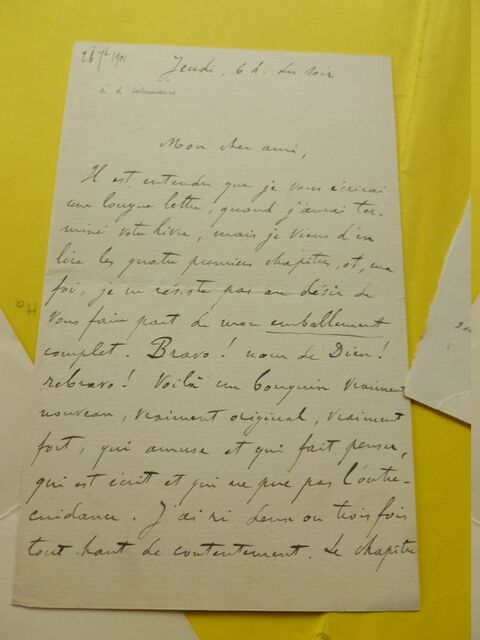 26 7bre 1901
Jeudi, 6 h. du soir
Mon cher ami,
Il est entendu que je vous écrirai
une longue lettre, quand j'aurai ter-
miné votre livre, mais je viens d'en
lire les quatre premiers chapitres, et, ma
foi, je ne résiste pas au désir de
vous faire part de mon emballement
complet. Bravo ! nom de Dieu !
rebravo ! Voilà un bouquin vraiment
nouveau, vraiment original, vraiment
fort, qui amuse et qui fait penser,
qui est écrit et qui ne pue pas l'outre-
cuidance. J'ai ri deux ou trois fois
tout haut de contentement. Le chapitre